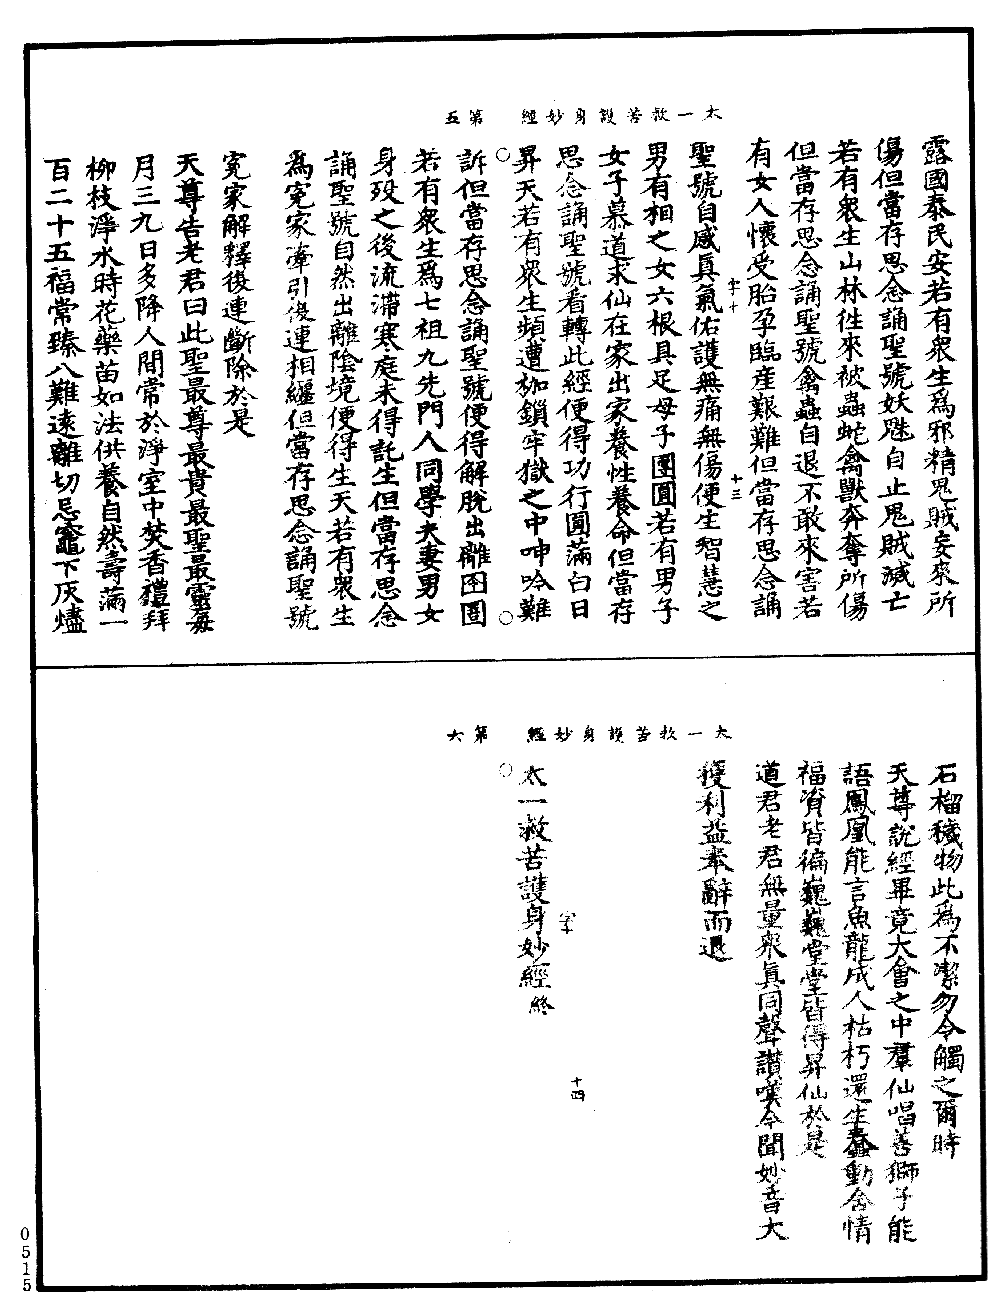 太一救苦護身妙經　第五
露國泰民安若有衆生爲邪精鬼賊妄來所
傷但當存思念誦聖號妖魅自止鬼賊滅亡
若有衆生山林徃來被蟲蛇禽獸奔奪所傷
但當存思念誦聖號禽蟲自退不敢來害若
有女人懷受胎孕臨産艱難但當存思念誦
字十　十三
聖號自感真氣佑護無痛無傷便生智慧之
男有相之女六根具足母子團圓若有男子
女子慕道求仙在家出家養性養命但當存
思念誦聖號看轉此經便得功行圓滿白日
昇天若有衆生頻遭枷鎖牢獄之中呻吟難
訴但當存思念誦聖號便得解脫出離囹圄
若有衆生爲七祖九先門人同學夫妻男女
身歿之後流滯寒庭未得託生但當存思念
誦聖號自然出離陰境便得生天若有衆生
爲冤家牽引復連相纏但當存思念誦聖號
冤家解釋復連斷除於是
天尊告老君曰此聖最尊最貴最聖最靈每
月三九日多降人間常於淨室中焚香禮拜
柳枝淨水時花藥苗如法供養自然壽滿一
百二十五福常臻八難遠離切忌竈下灰燼
太一救苦護身妙經　第六
石榴穢物此爲不潔勿令觸之爾時
天尊說經畢竟大會之中羣仙唱善獅子能
語鳳凰能言魚龍成人枯朽還生蠢動含情
福資皆徧巍巍堂堂皆得昇仙於是
道君老君無量衆真同聲讃嘆今聞妙音大
獲利益奉辭而退
字十　十四
太一救苦護身妙經終
0515